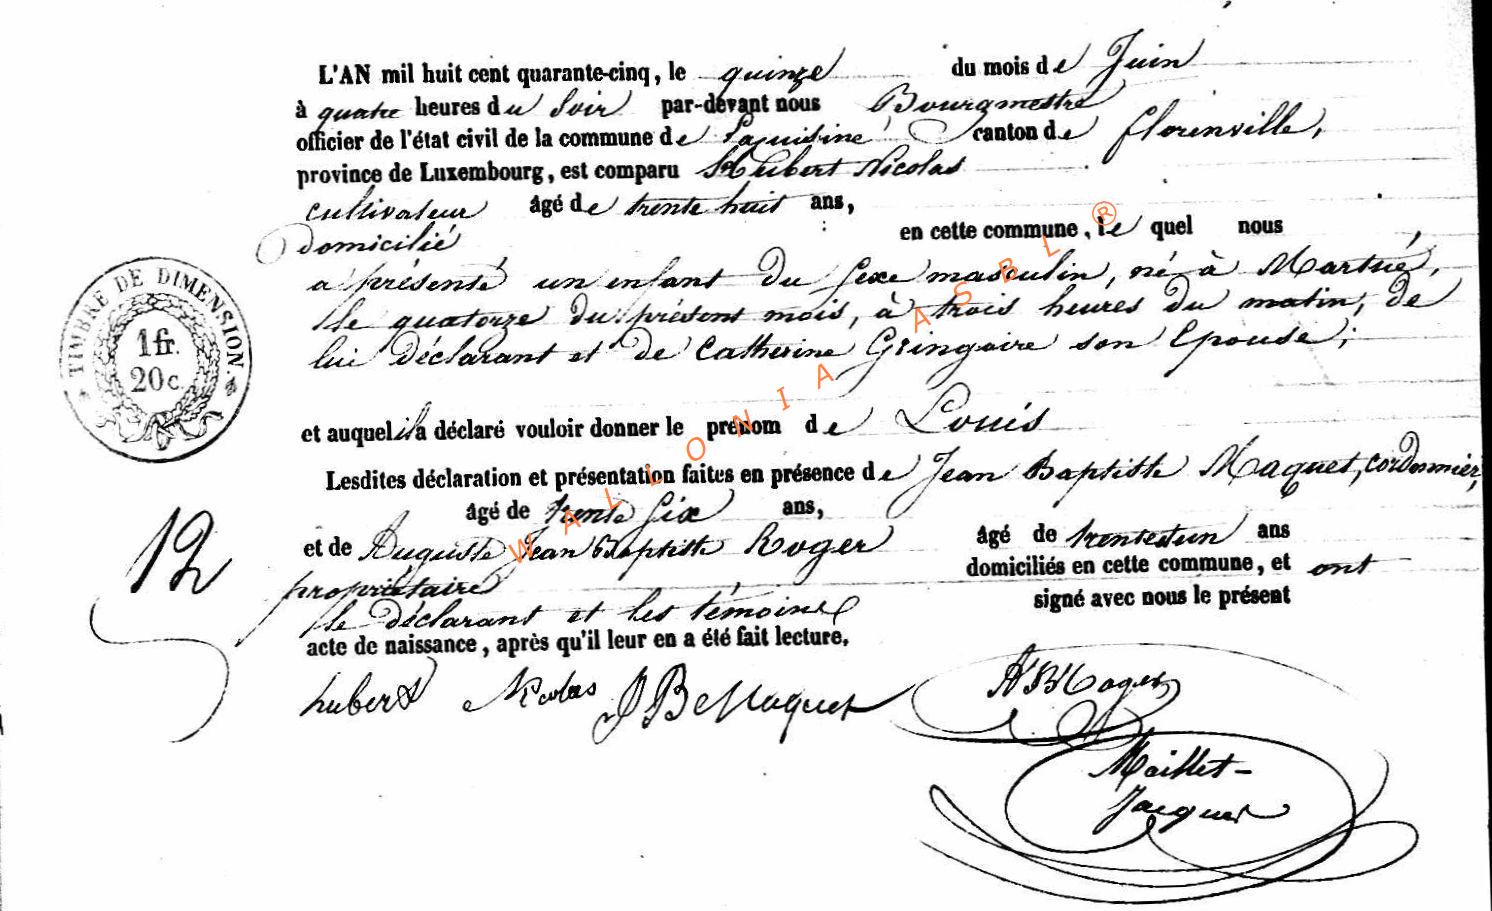 L'AN mil huit cent quarante-cinq, le quinze du mois de Juin
à quatre heures du Soir par-devant nous Bourgmestre
officier de l'état civil de la commune de Laquisine canton de florenville,
province de Luxembourg, est comparu Hubert Nicolas
cultivateur âgé de trente huit ans,
domicilié en cette commune, le quel nous
a présenté un enfant du sexe masculin, né à Martué,
le quatorze du présent mois, à trois heures du matin, de
lui déclarant et de Catherine Gringoire son Epouse;
et auquel il a déclaré vouloir donner le prénom de Louis
Lesdites déclaration et présentation faites en présence de Jean Baptiste Maquet, cordonnier,
âgé de trente six ans,
et de Auguste Jean Baptiste Roger âgé de trente et un ans
propriétaire domiciliés en cette commune, et ont
le déclarant et les témoins signé avec nous le présent
acte de naissance, après qu'il leur en a été fait lecture.
TIMBRE DE DIMENSION
1 fr.
20 c.
12
hubert Nicolas JB Maquet
Maillet-
Jacques
WALLONIA ASBL ®